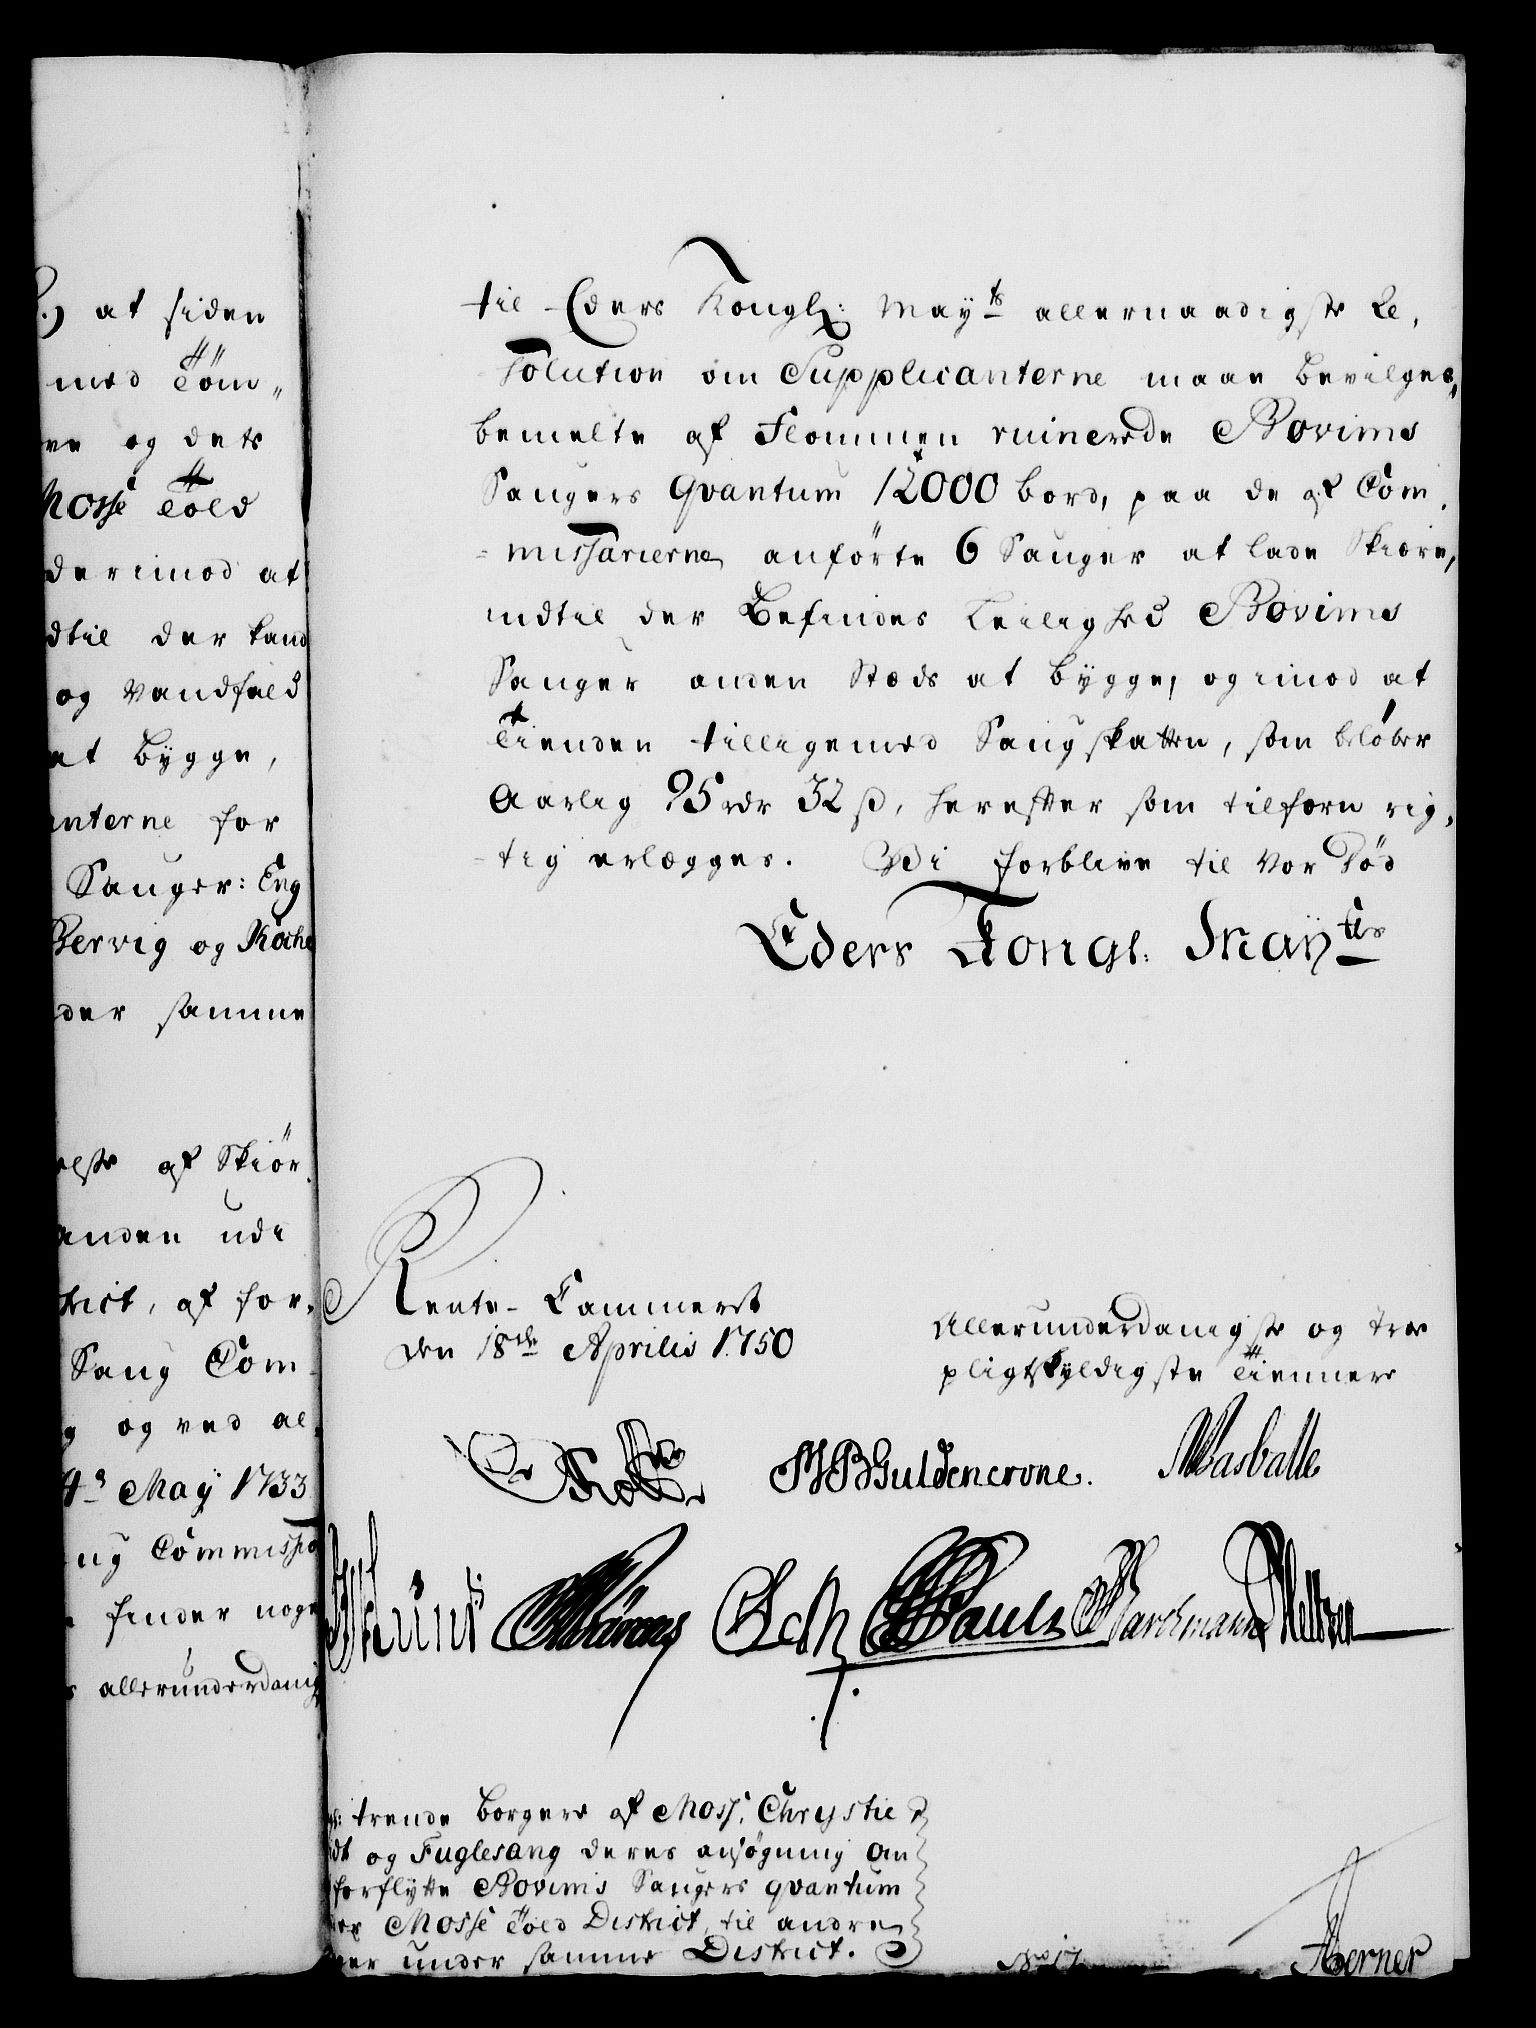 at siden
med Töm„
ve og dets
Mosse Told
derimod at
dtil der kand
og Vandfald
at bÿgge,
anterne for
Sauger: Eng
Bervig og Kiöche
der samme
else af Skiör,
anden udi
trict, af for,
Saug Com-
og ved al,
4de Maÿ 1733
ug Commissio
finder noge
allerunderdanig
til Eders Kongl: Maÿts allernaadigste Re,
solution om Supplicanterne maae bevilges,
bemelte af Flommen ruinerede Bovims
Saugers qvantum 12000 bord, paa de af Com,
=missarierne anförte 6 Sauger at lade Skiære,
indtil der befindes Leilighed Bovims
Sauger anden Stæds at bÿgge, og imod at
Tienden tilligemed Saugskatten, som belöber
Aarlig 95 rdr 32 ß, herefter som tilforn rig,
-tig erlægges. Vi forblive til Vor Död
Eders Kongl: Maÿts
Rente-Cammeret
den 18de Aprilis 1750
Allerunderdanigste og troe
pligtskyldigste Tiennere
Güldencrone. Masballe
Selb Pauli Barchmann
trende borgere af Moss, Chrystie
dt og Fuglesang deres ansögning an
forflÿtte Bovims Saugers qvantum
der Mosse Told District, til andre
ger under samme District.
No 17
Berner